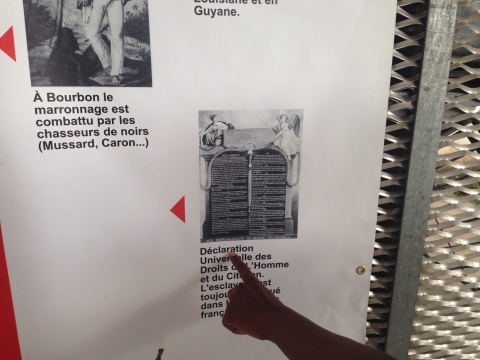 Louisiane et en
Guyane.
À Bourbon le
marronnage est
combattu par les
chasseurs de noirs
(Mussard, Caron...)
Déclaration
Universelle des
Droits de L'Homme
et du Citoyen.
L'esclavage est
toujours
dans